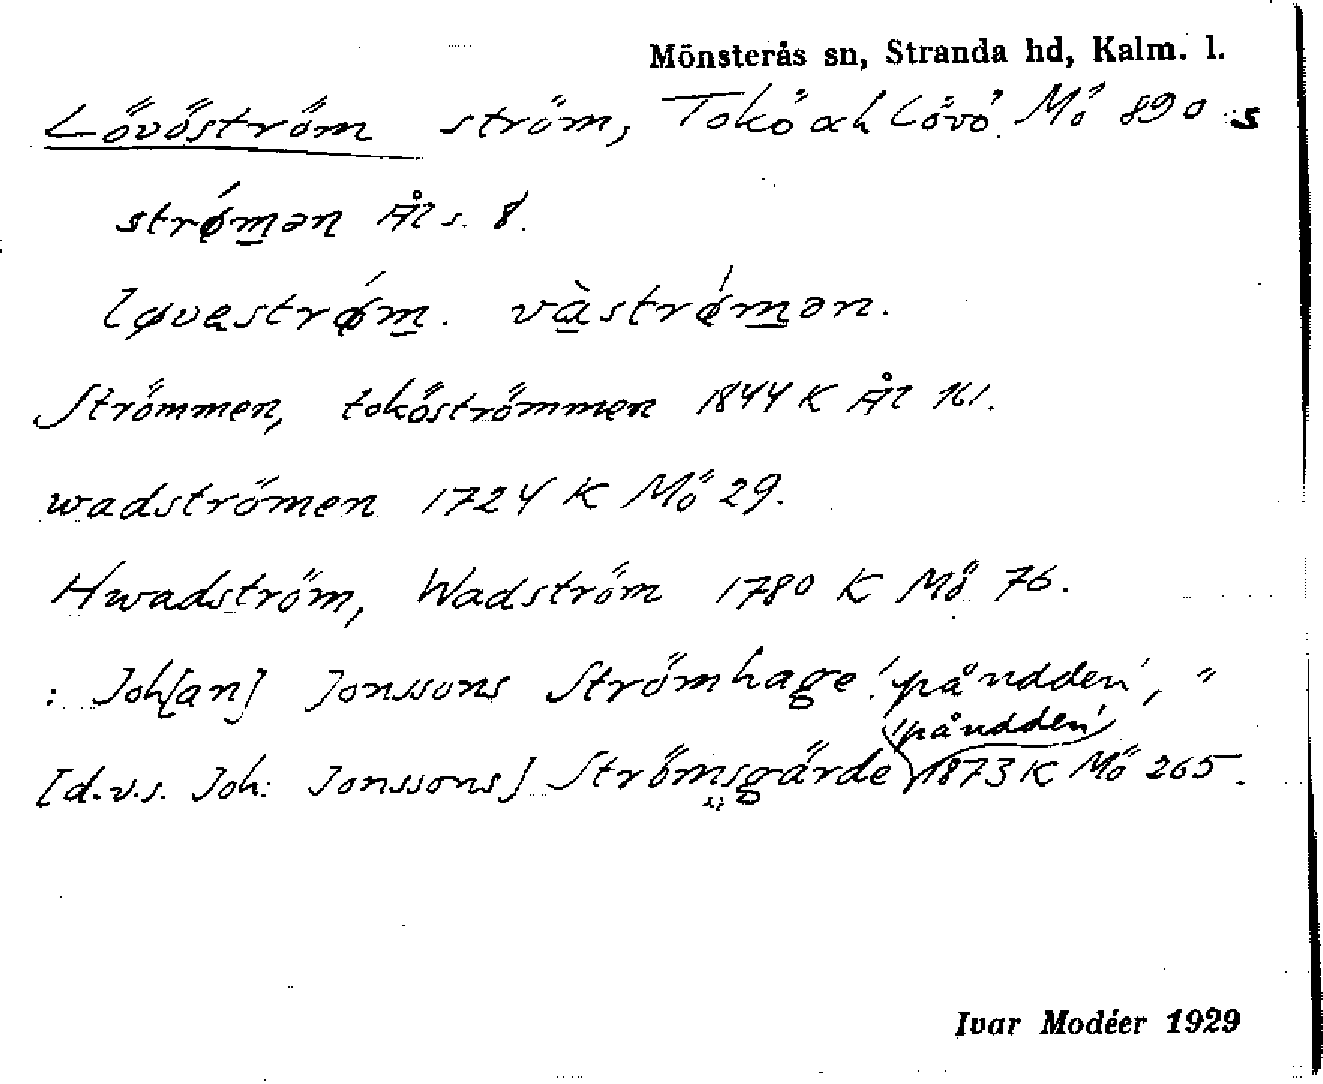 Mönsterås sn, Stranda hd, Kalm. l.
Lövöström ström, Tokö och Lövö. Mö 890 s
strǿmən Ål s. 8.
løvestrǿm. vàstrǿmən.
Strömmen, tokőströmmen 1844 K Ål 161.
wadströmen 1724 K Mö 29.
Hwadström, Wadström 1780 K Mö 76.
: Joh[an] Jonssons Strömhage 'på udden', "
'på udden'
[d.v.s. Joh: Jonssons] Strömsgärde 1873 K Mö 265.
Ivar Modéer 1929